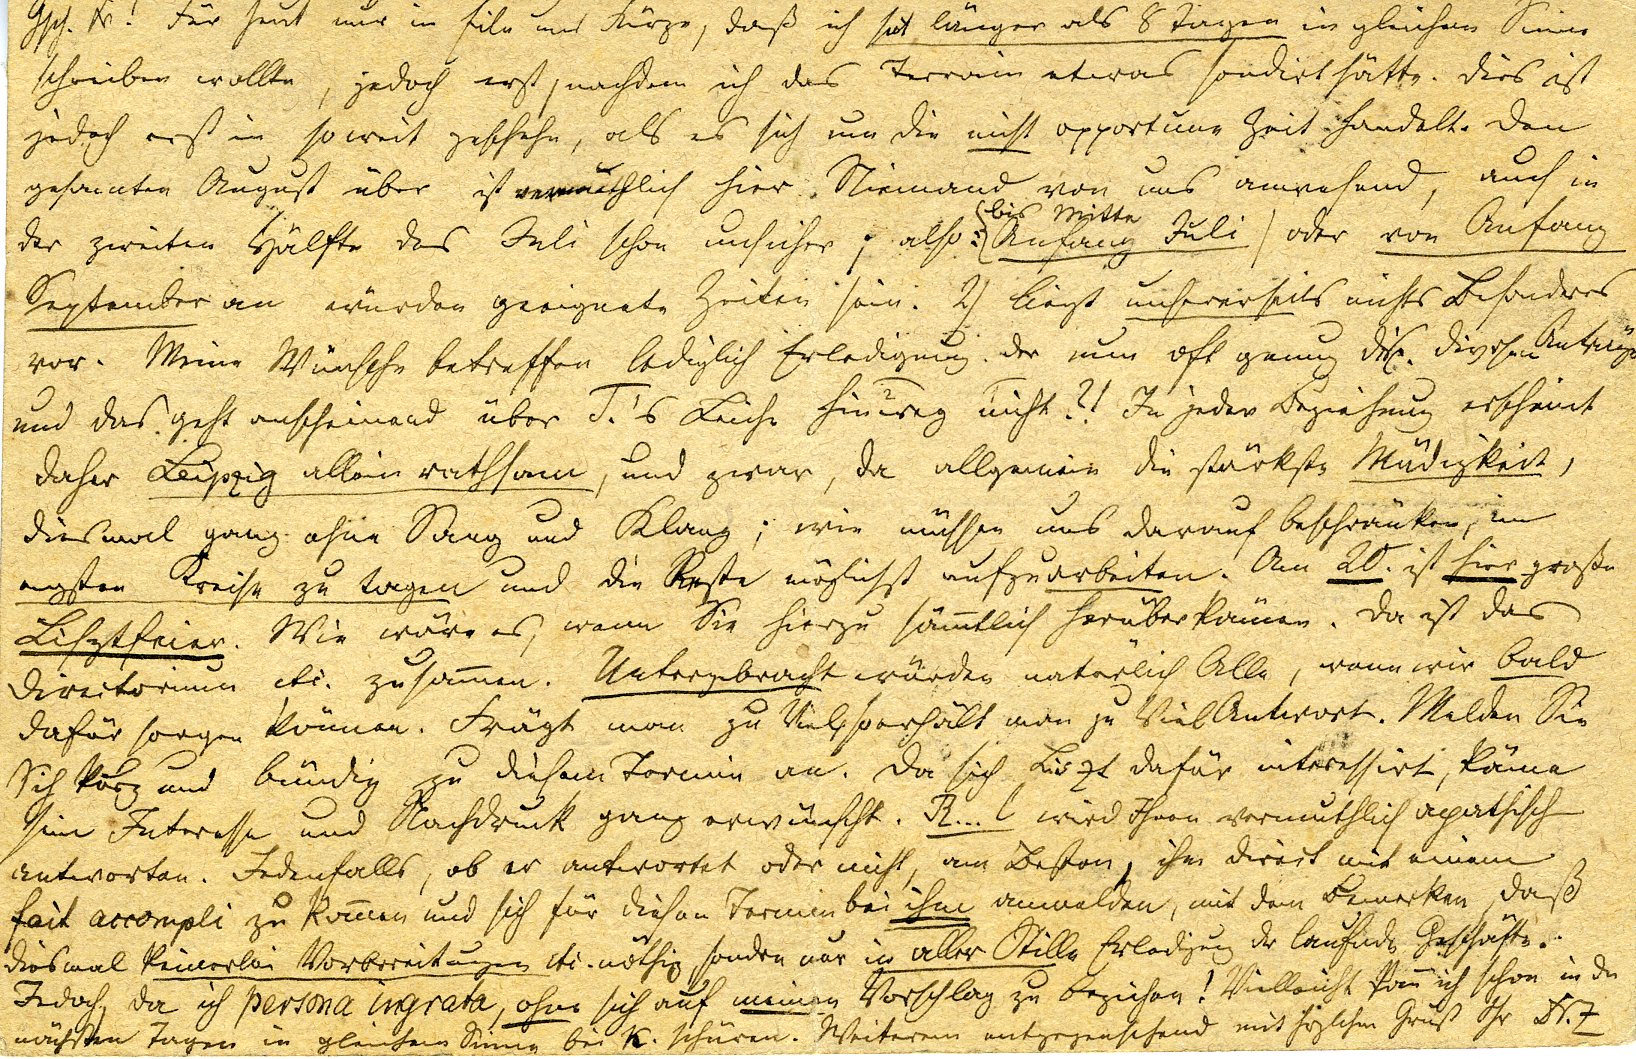 Gsch. Fr! Für heut nur in Eile und Kürze, daß ich seit länger als 8 Tagen in gleichem Sinne
schreiben wollte, jedoch erst, nachdem ich das Terrain etwas sondirt hätte. Dies ist
jedoch erst in soweit geschehn, als es sich um die nicht opportune Zeit handelt. Den
gesammten August über ist vermuthlich hier Niemand von uns anwesend, auch in
der zweiten Hälfte des Juli schon unsicher; also: (bis Mitte Anfang Juli) oder von Anfang
September an würden geeignete Zeiten sein. 2) liegt unsererseits nichts Besonderes
vor. Meine Wünsche betreffen lediglich Erledigung der nun oft genug diversen Anträge
und das geht anscheinend über T.'s Leiche hinweg nicht?! In jeder Beziehung erscheint
daher Leipzig allein rathsam, und zwar, da allgemein die stärkste Müdigkeit,
diesmal ganz ohne Sang und Klang; wir müssen uns darauf beschränken, im
engsten Kreise zu tagen und die Reste möglichst aufzuarbeiten. Am 20. ist hier große
Lisztfeier. Wie wäre es, wenn Sie hierzu sämmtlich herüberkämen. Da ist das
Directorium etc. zusammen. Untergebracht würden natürlich Alle, wenn wir bald
dafür sorgen können. Frägt man zu Viel, so erhält man zu Viel Antwort. Melden Sie
Sich kurz und bündig zu diesem Termin an. Da sich Liszt dafür interessirt, käme
sein Interesse und Nachdruck ganz erwünscht. R...l wird Ihnen vermuthlich apathisch
antworten. Jedenfalls, ob er antwortet oder nicht, am Besten, ihm direct mit einem
fait accompli zu kommen und sich für diesen Termin bei ihm anmelden, mit dem Bemerken, daß
diesmal keinerlei Vorbereitungen etc. nöthig, sondern nur in aller Stille Erledigung der laufenden Geschäfte.
Jedoch, da ich persona ingrata, ohne sich auf meinen Vorschlag zu beziehen! Vielleicht kann ich schon in den
nächsten Tagen in gleichem Sinne bei K. schüren. Weiterem entgegensehend mit herzlichem Gruß Ihr Dr. Z